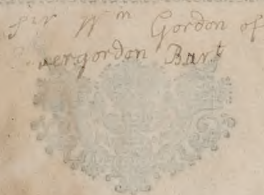 Sir Wm Gordon of
Invergordon Bart